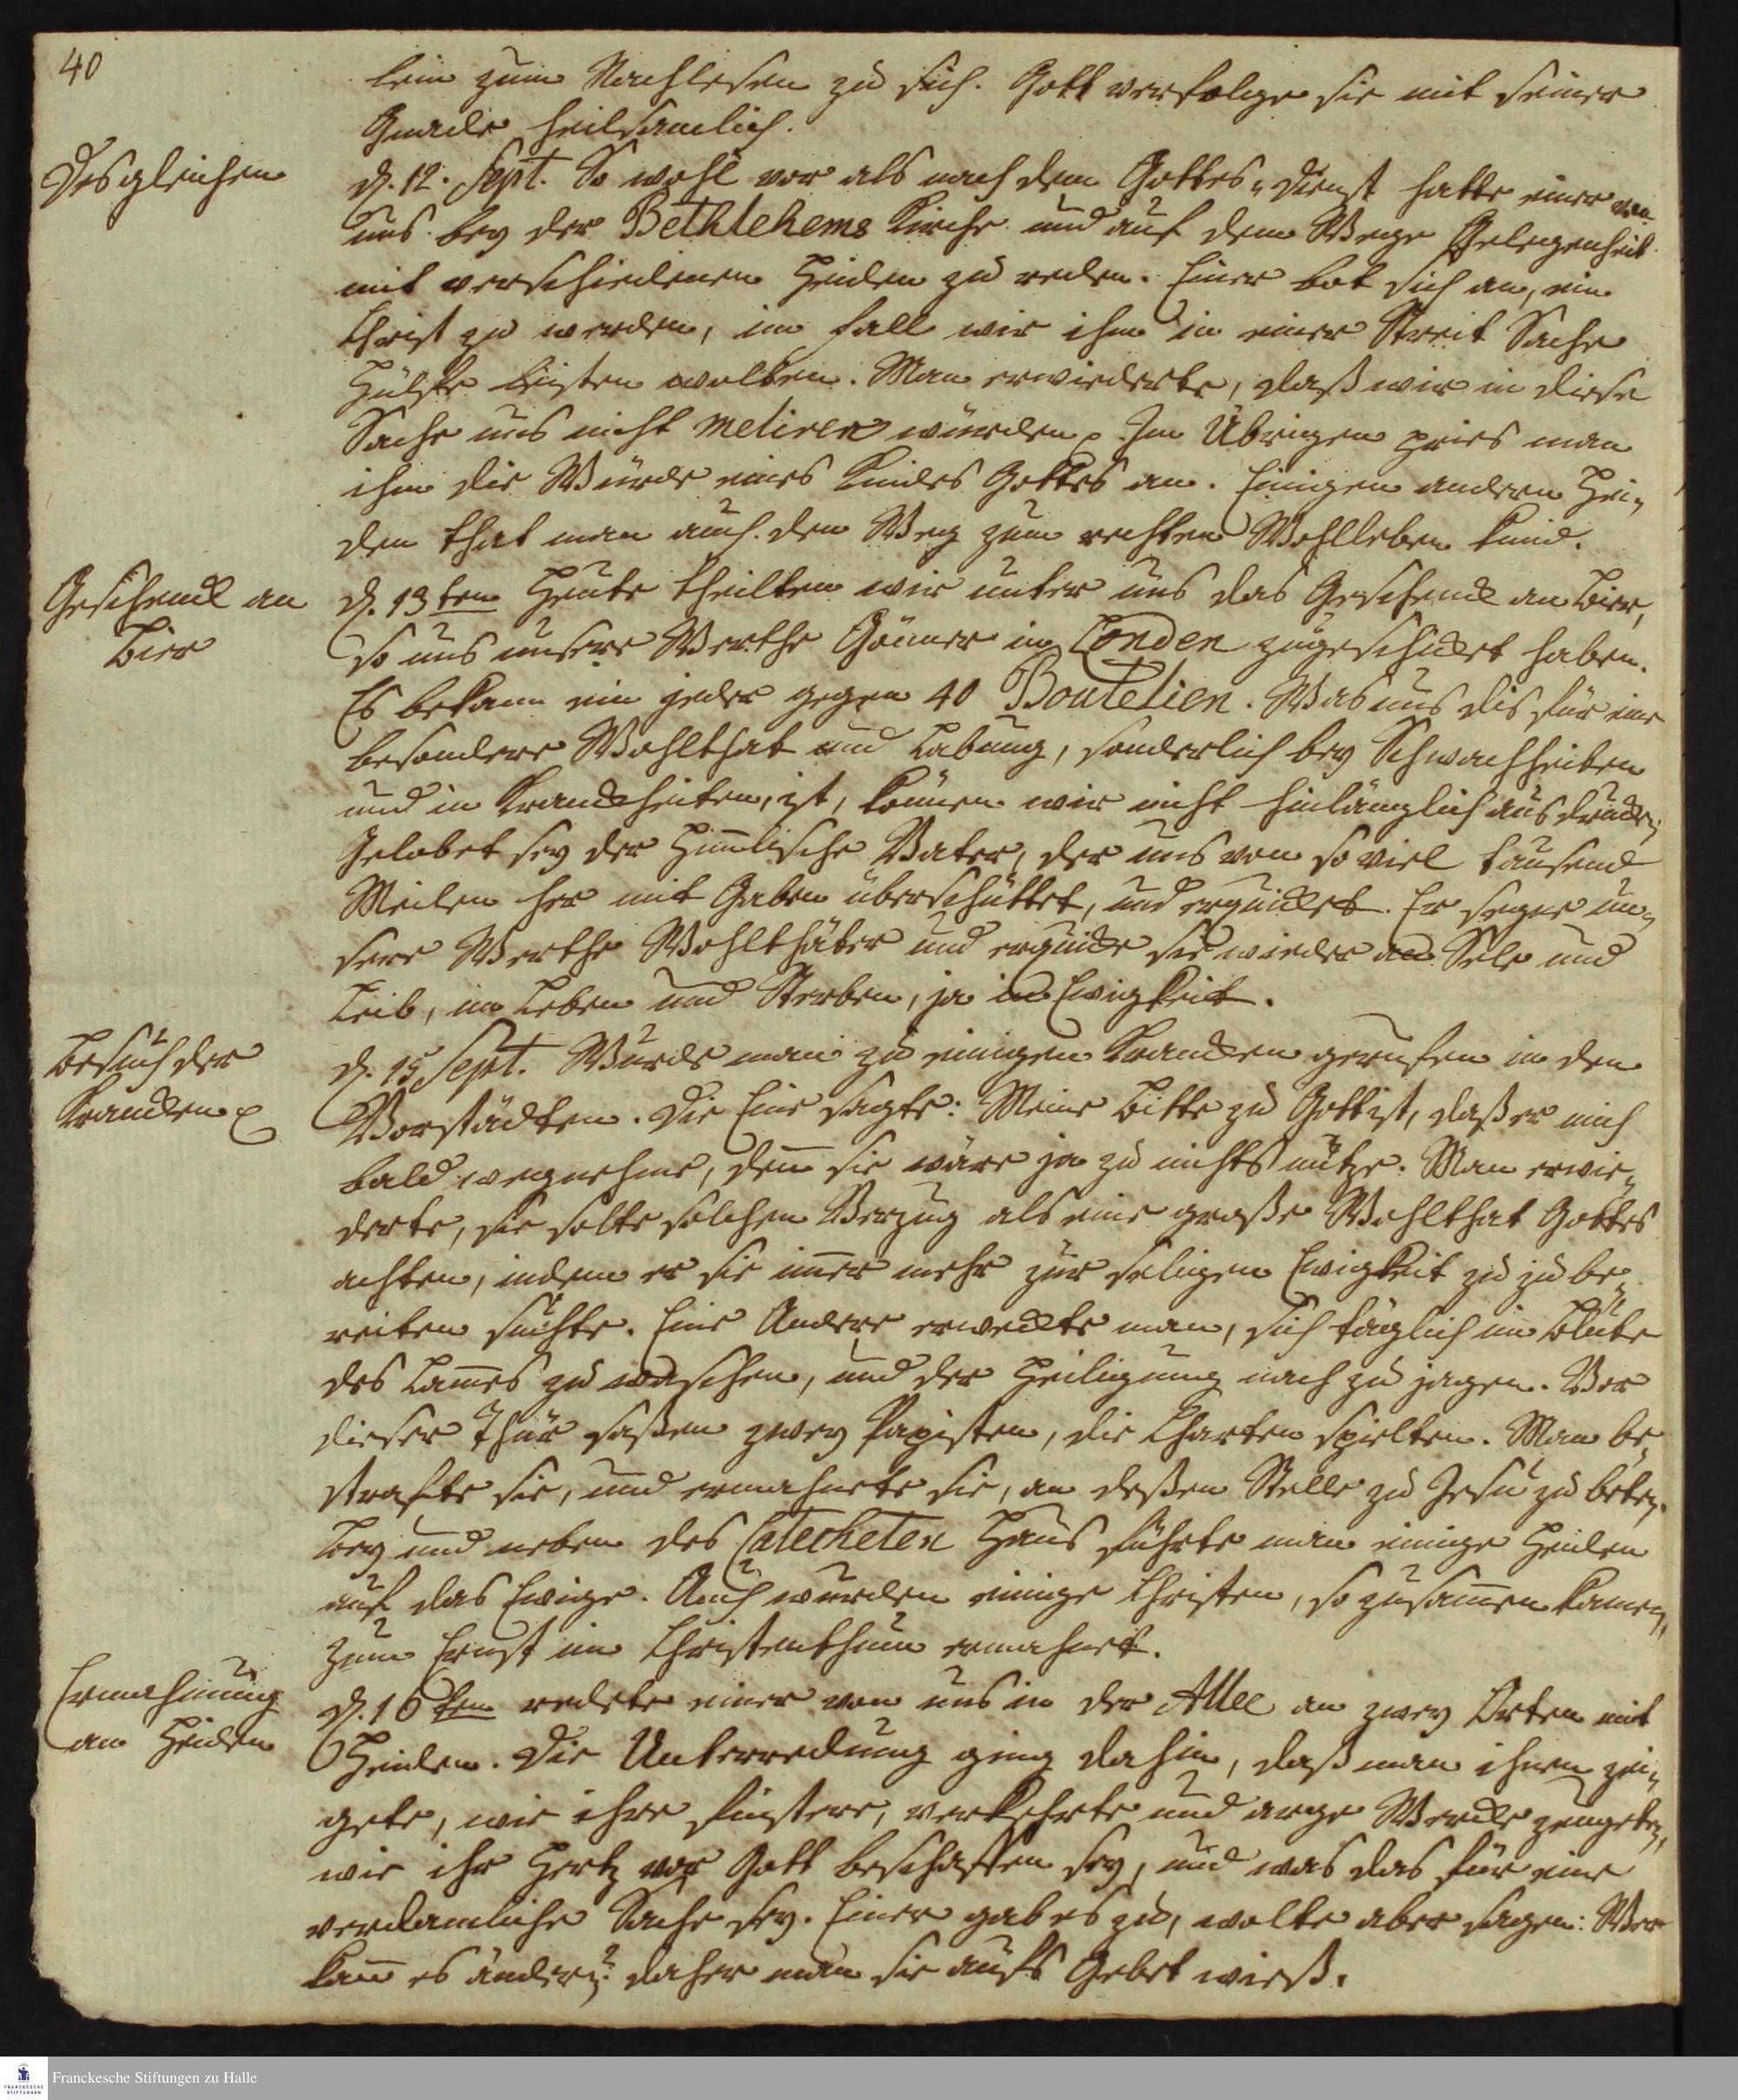 40
lein zum Nachlesen zu sich. Gott verfolge sie mit seiner
Gnade heilsamlich.
Desgleichen
d. 12. Sept. So wohl vor als nach dem Gottes-dienst hatte einer von
uns bey der Bethlehems Kirche und auf dem Wege Gelegenheit
mit verschiedenen Heiden zu reden. Einer bot sich an, ein
Christ zu werden, im fall wir ihm in einer Streit Sache
Hülfe leisten wolten. Man erwiederte, daß wir in diese
Sache uns nicht meliren würden. Im Übrigen pries man
ihm die Würde eines Kindes Gottes an. Einigen andern Hei-
den that man auch den Weg zum rechten Wohlleben kund.
Geschenck an
Bier
d. 13ten Heute theilten wir unter uns das Geschenck an Bier,
so uns unsere Werthe Gönner in London zugeschicket haben.
Es bekam ein jeder gegen 40 Boutelien. Was uns dis für eine
besondere Wohlthat und Labung, sonderlich bey Schwachheiten
und in Kranckheiten, ist, können wir nicht hinlänglich ausdrucken,
Gelobet sey der Himlische Vater, der uns von so viel tausend
Meilen her mit Gaben überschüttet, und erquicket. Er segne un-
sere Werthe Wohlthäter und erquicke sie wieder an Sele und
Leib, im Leben und Sterben, ja in Ewigkeit.
Besuch der
Krancken
d. 15 Sept. Wurde man zu einigen Krancken gerufen in den
Vorstädten. Die Eine sagte: Meine Bitte zu Gott ist, daß er mich
bald wegnehme, denn sie wäre ja zu nichts nütze. Man erwie-
derte, sie solte solchen Verzug als eine große Wohlthat Gottes
achten, indem er sie immer mehr zur seligen Ewigkeit zu zu be-
reiten suchte. Eine Andere erweckte man, sich täglich im Blute
des Lammes zu waschen, und der Heiligung nach zu jagen. Vor
dieser Thür saßen zwey Papisten, die Charten spielten. Man be-
strafte sie, und ermahnete sie, an deßen Stelle zu Jesu zu beten.
Bey und neben des Catecheten Haus führte man einige Heiden
auf das Ewige. Auch wurden einige Christen, so zusammen kamen,
zum Ernst im Christenthum ermahnet.
Ermahnung
an Heiden
d. 16ten redete einer von uns in der Allee an zwey Orten mit
Heiden. Die Unterredung ging dahin, daß man ihnen zei-
gete, wie ihre finstere, verkehrte und arge Wercke zeugeten,
wie ihr Hertz vor Gott beschaffen sey, und was das für eine
verdamliche Sache sey. Einer gab es zu, wolte aber sagen: Wer
kann es ändern? daher man sie aufs Gebet wieß.
FRANCKESCHE
STIFTUNGEN
Franckesche Stiftungen zu Halle